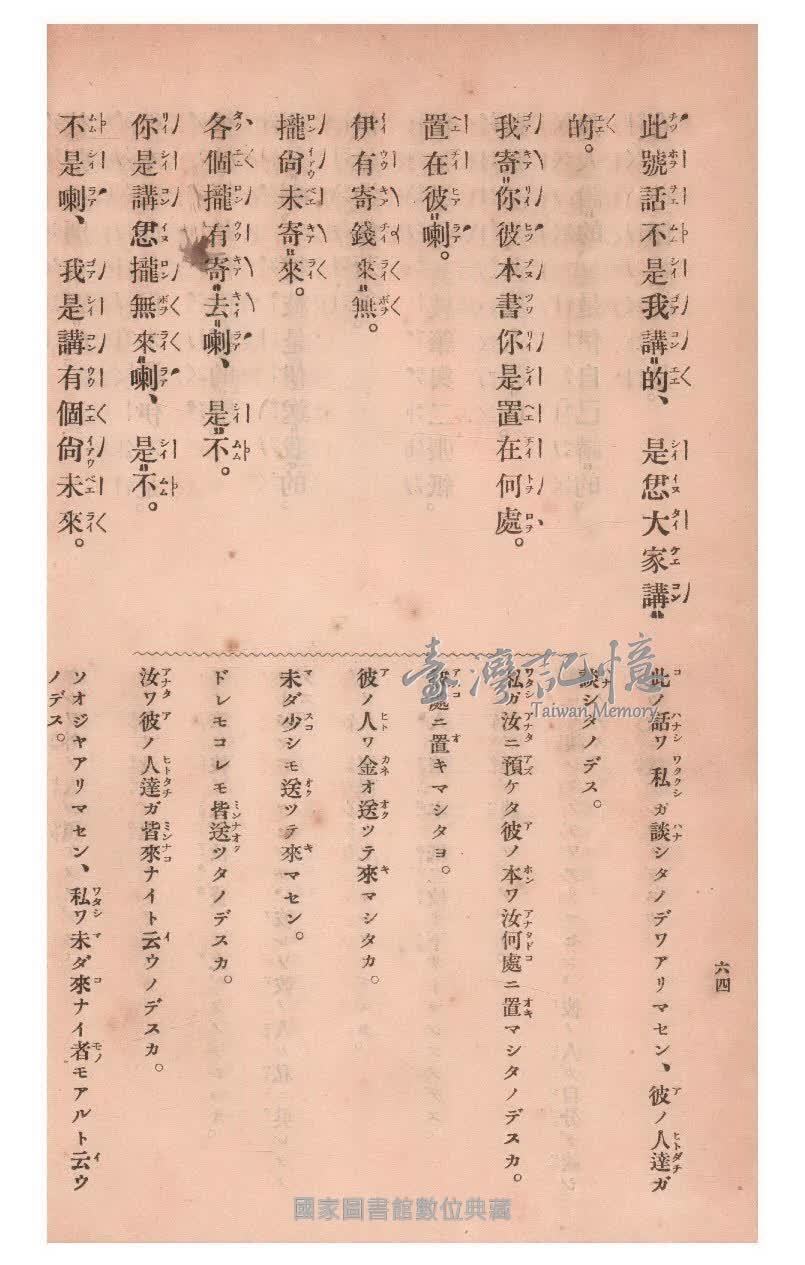 此號話不是我講的、是恁大家講
的。
我寄你彼本書你是置在何處。
置在彼喇。
伊有寄錢來無。
攏尙未寄來。
各個攏有寄去喇、是不。
你是講恁攏無來喇、是不。
不是喇、我是講有個尙未來。
此ノ話ワ私ガ談シタノデワアリマセン、彼ノ人達ガ
談シタノデス。
私ガ汝ニ預ケタ彼ノ本ワ汝何處ニ置マシタノデスカ。
處ニ置キマシタヨ。
彼ノ人ワ金オ送ツテ來マシタカ。
未ダ少シモ送ツテ來マセン。
ドレモコレモ皆送ツタノデスカ。
汝ワ彼ノ人達ガ皆來ナイト云ウノデスカ。
ソオジヤアリマセン、私ワ未ダ來ナイ者モアルト云ウ
ノデス。
六四
臺灣記憶
Taiwan Memory
國家圖書館數位典藏